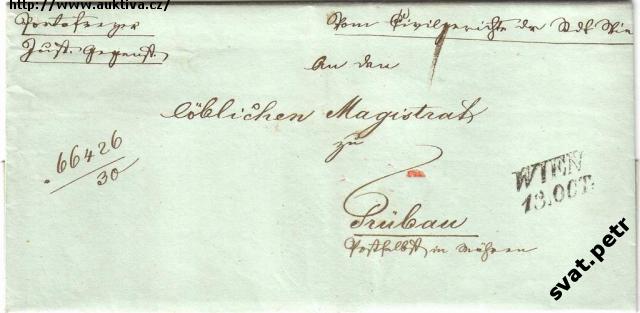 http://www.auktiva.cz/
Portofreyer
Just. Gegenst.
Vom Civilgerichte der Stdt Wie
An den
löblichen Magistrat
zu
66426
30
WIEN
13.OCT.
Trübau
in Mähren
svat.petr